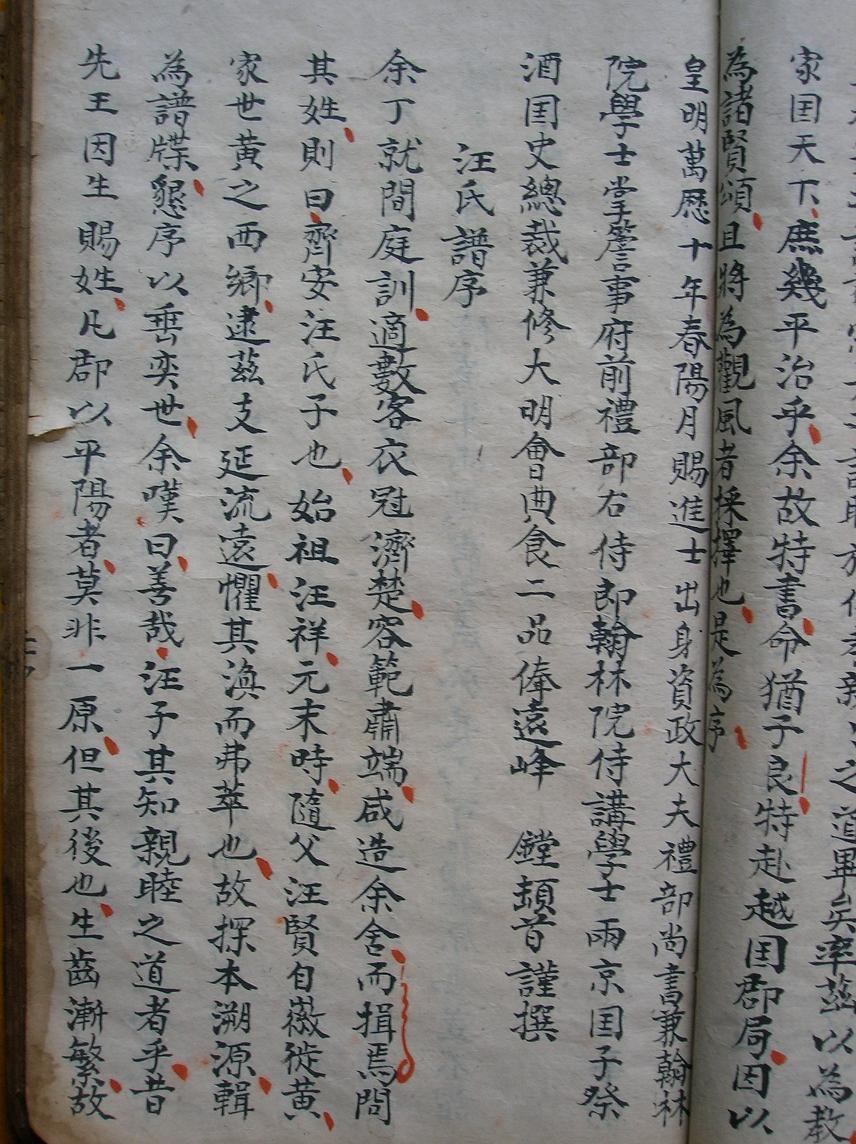 之道畢矣率茲以為教
家国天下庶幾平治乎余故特書命猶子良特赴越国郡局因以
為諸賢頌且將為觀風者採擇也是為序
皇明萬歷十年春陽月賜進士出身資政大夫禮部尚書兼翰林
院學士掌詹事府前禮部右侍郎翰林院侍講學士兩京国子祭
酒国史總裁兼修大明會典食二品俸遠峰 鏜頓首謹撰
汪氏譜序
余丁就間庭訓適數客衣冠濟楚容範肅端咸造余舍而揖焉問
其姓則曰齊安汪氏子也始祖汪祥元末時隨父汪賢自徽徙黄
家世黄之西鄉逮茲支延流遠懼其渙而弗萃也故探本溯源輯
為譜牒懇序以垂奕世余嘆曰善哉汪子其知親睦之道者乎昔
先王因生賜姓凡郡以平陽者莫非一原但其後也生齒漸繁故